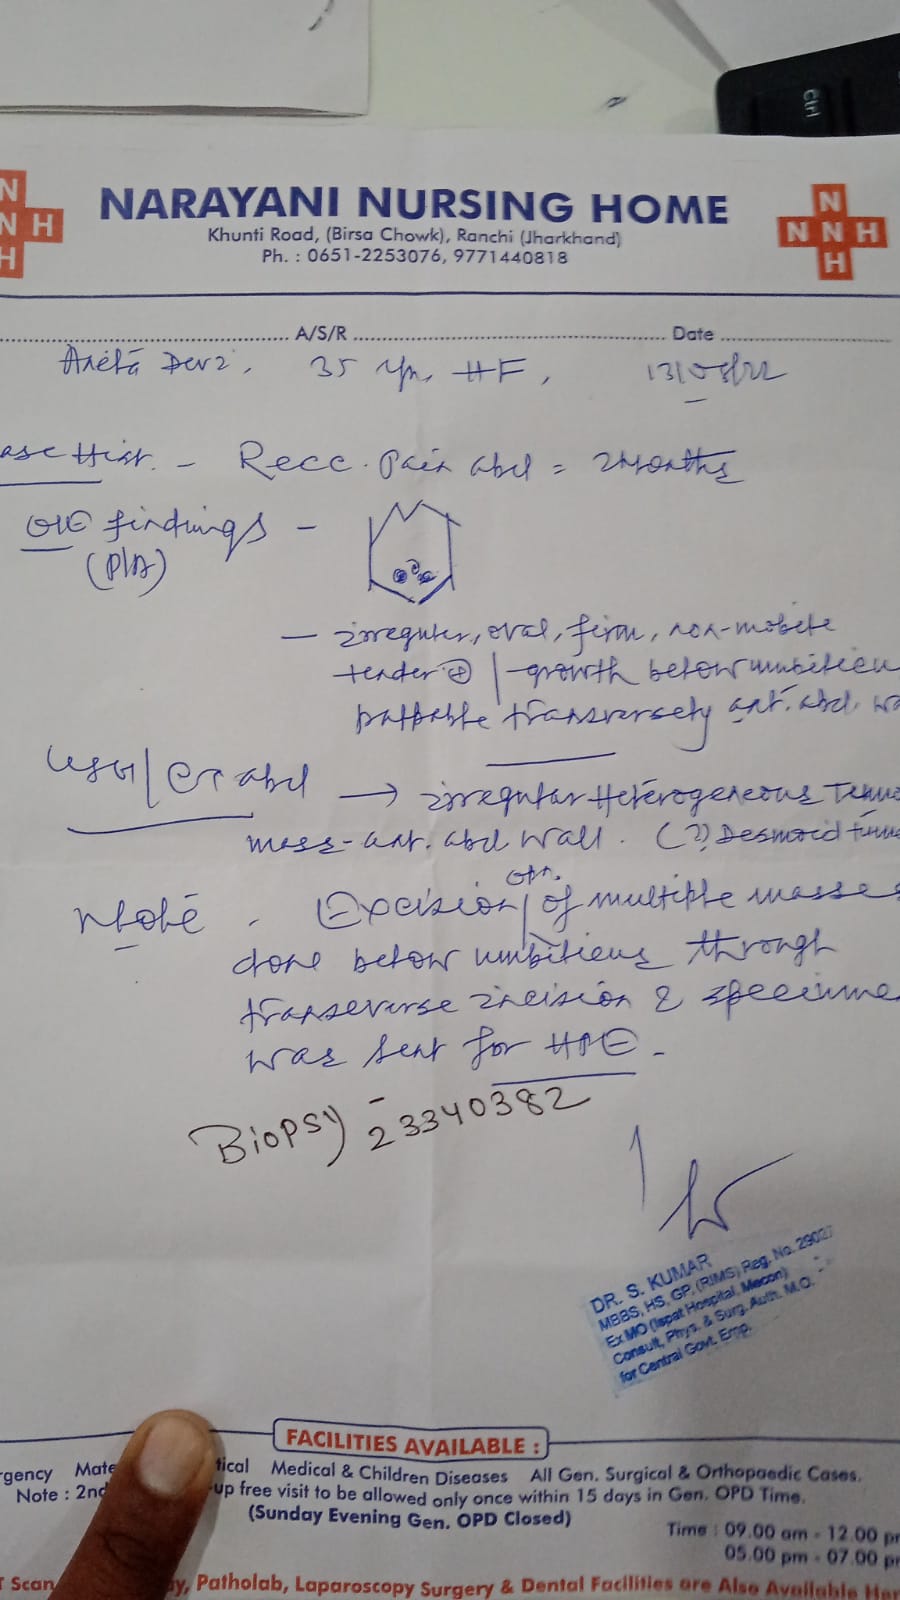 Ctrl
N
N H
H
NARAYANI NURSING HOME
Khunti Road, (Birsa Chowk), Ranchi (Jharkhand)
Ph. : 0651-2253076, 9771440818
N
N N H
H
A/S/R Date
Devi, 35 yrs HF, 13/08/22
ase Hist. - Recc. Pain abd = 2 months
O/E findings -
(P/A)
- irregular, oval, firm, non-mobile
tender ⊕ / growth below umbilicu
palpable transversely ant. abd. wa
USG/CT abd → irregular Heterogeneous
mass - ant. abd wall. (?) Desmoid
Note. Excision / opn. of multiple masses
done below umbilicus through
transverse incision & specime
was sent for HPE.
Biopsy - 23340382
DR. S. KUMAR
MBBS, HS, GP, (RIMS) Reg. No. 29027
Ex MO (Ispat Hospital, Mecon)
Consult, Phys. & Surg. Auth. M.O.
for Central Govt. Emp.
FACILITIES AVAILABLE :
rgency Mate tical Medical & Children Diseases All Gen. Surgical & Orthopaedic Cases.
Note : 2nd -up free visit to be allowed only once within 15 days in Gen. OPD Time.
(Sunday Evening Gen. OPD Closed)
Time : 09.00 am - 12.00 p
05.00 pm - 07.00 p
T Scan y, Patholab, Laparoscopy Surgery & Dental Facilities are Also Available Her